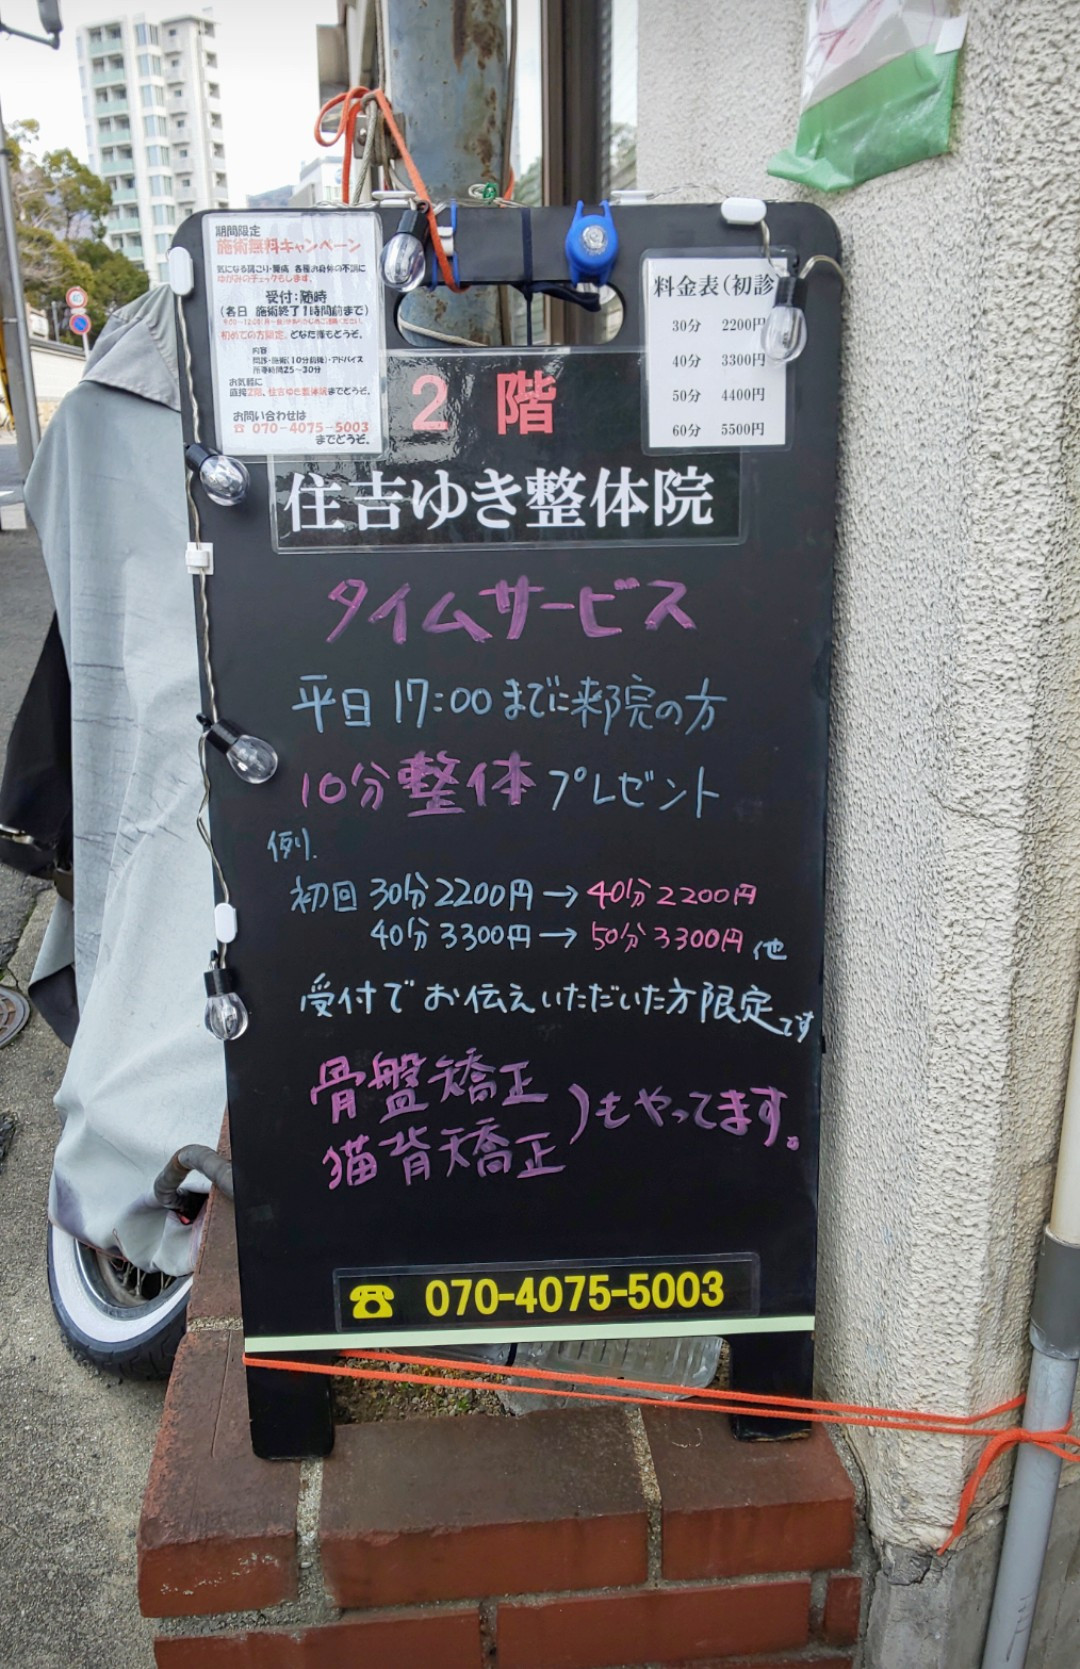 期間限定
施術無料キャンペーン
気になる肩こり・腰痛 各種お身体の不調に
ゆがみのチェックもします。
受付：随時
(各日 施術終了1時間前まで)
初めての方限定。どなた様もどうぞ。
内容
問診・施術(10分前後)・アドバイス
所要時間25～30分
お気軽に
直接2階、住吉ゆき整体院までどうぞ。
お問い合わせは
☎ 070-4075-5003
までどうぞ。
料金表(初診
30分 2200円
40分 3300円
50分 4400円
60分 5500円
2 階
住吉ゆき整体院
タイムサービス
平日 17:00までに来院の方
10分整体プレゼント
例.
初回 30分 2200円→40分 2200円
40分 3300円→50分 3300円 他
受付でお伝えいただいた方限定です
骨盤矯正
猫背矯正
)もやってます。
☎ 070-4075-5003